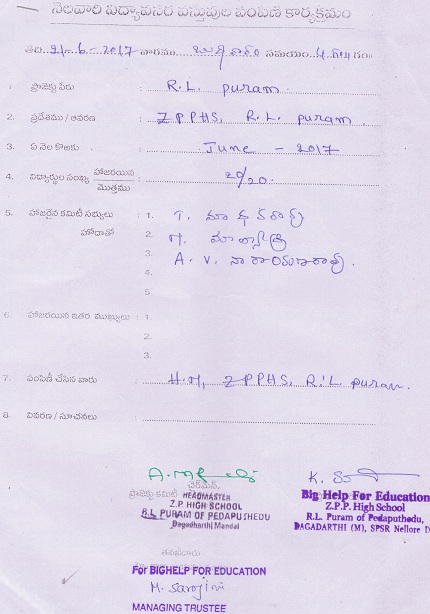 నెలవారి విద్యావసర వస్తువుల పంపిణీ కార్యక్రమం
తేది 21-6-2017 వారము బుధవారం సమయం 4.00గం
1. ప్రాజెక్టు పేరు : R.L. puram.
2. ప్రదేశము / ఆవరణ : ZPPHS, R.L. puram
3. ఏ నెల కొఱకు : June - 2017
4. విద్యార్థుల సంఖ్య హాజరయిన / మొత్తము : 20/20.
5. హాజరైన కమిటీ సభ్యులు : 1. T.
హోదాతో 2.
3. A. V. నారాయణరావు.
4.
5.
6. హాజరయిన ఇతర ముఖ్యులు : 1.
2.
3.
7. పంపిణీ చేసిన వారు : H.M, ZPPHS, R.L. puram.
8. వివరణ / సూచనలు :
ఛైర్మన్,
ప్రాజెక్టు కమిటీ
HEADMASTER
Z.P. HIGH SCHOOL
R.L PURAM OF PEDAPUTHEDU
Dagadharthi Mandal
Big Help For Education
Z.P.P. High School
R.L. Puram of Pedaputhedu,
DAGADARTHI (M), SPSR Nellore
FOR BIGHELP FOR EDUCATION
M. Sarojini
MANAGING TRUSTEE